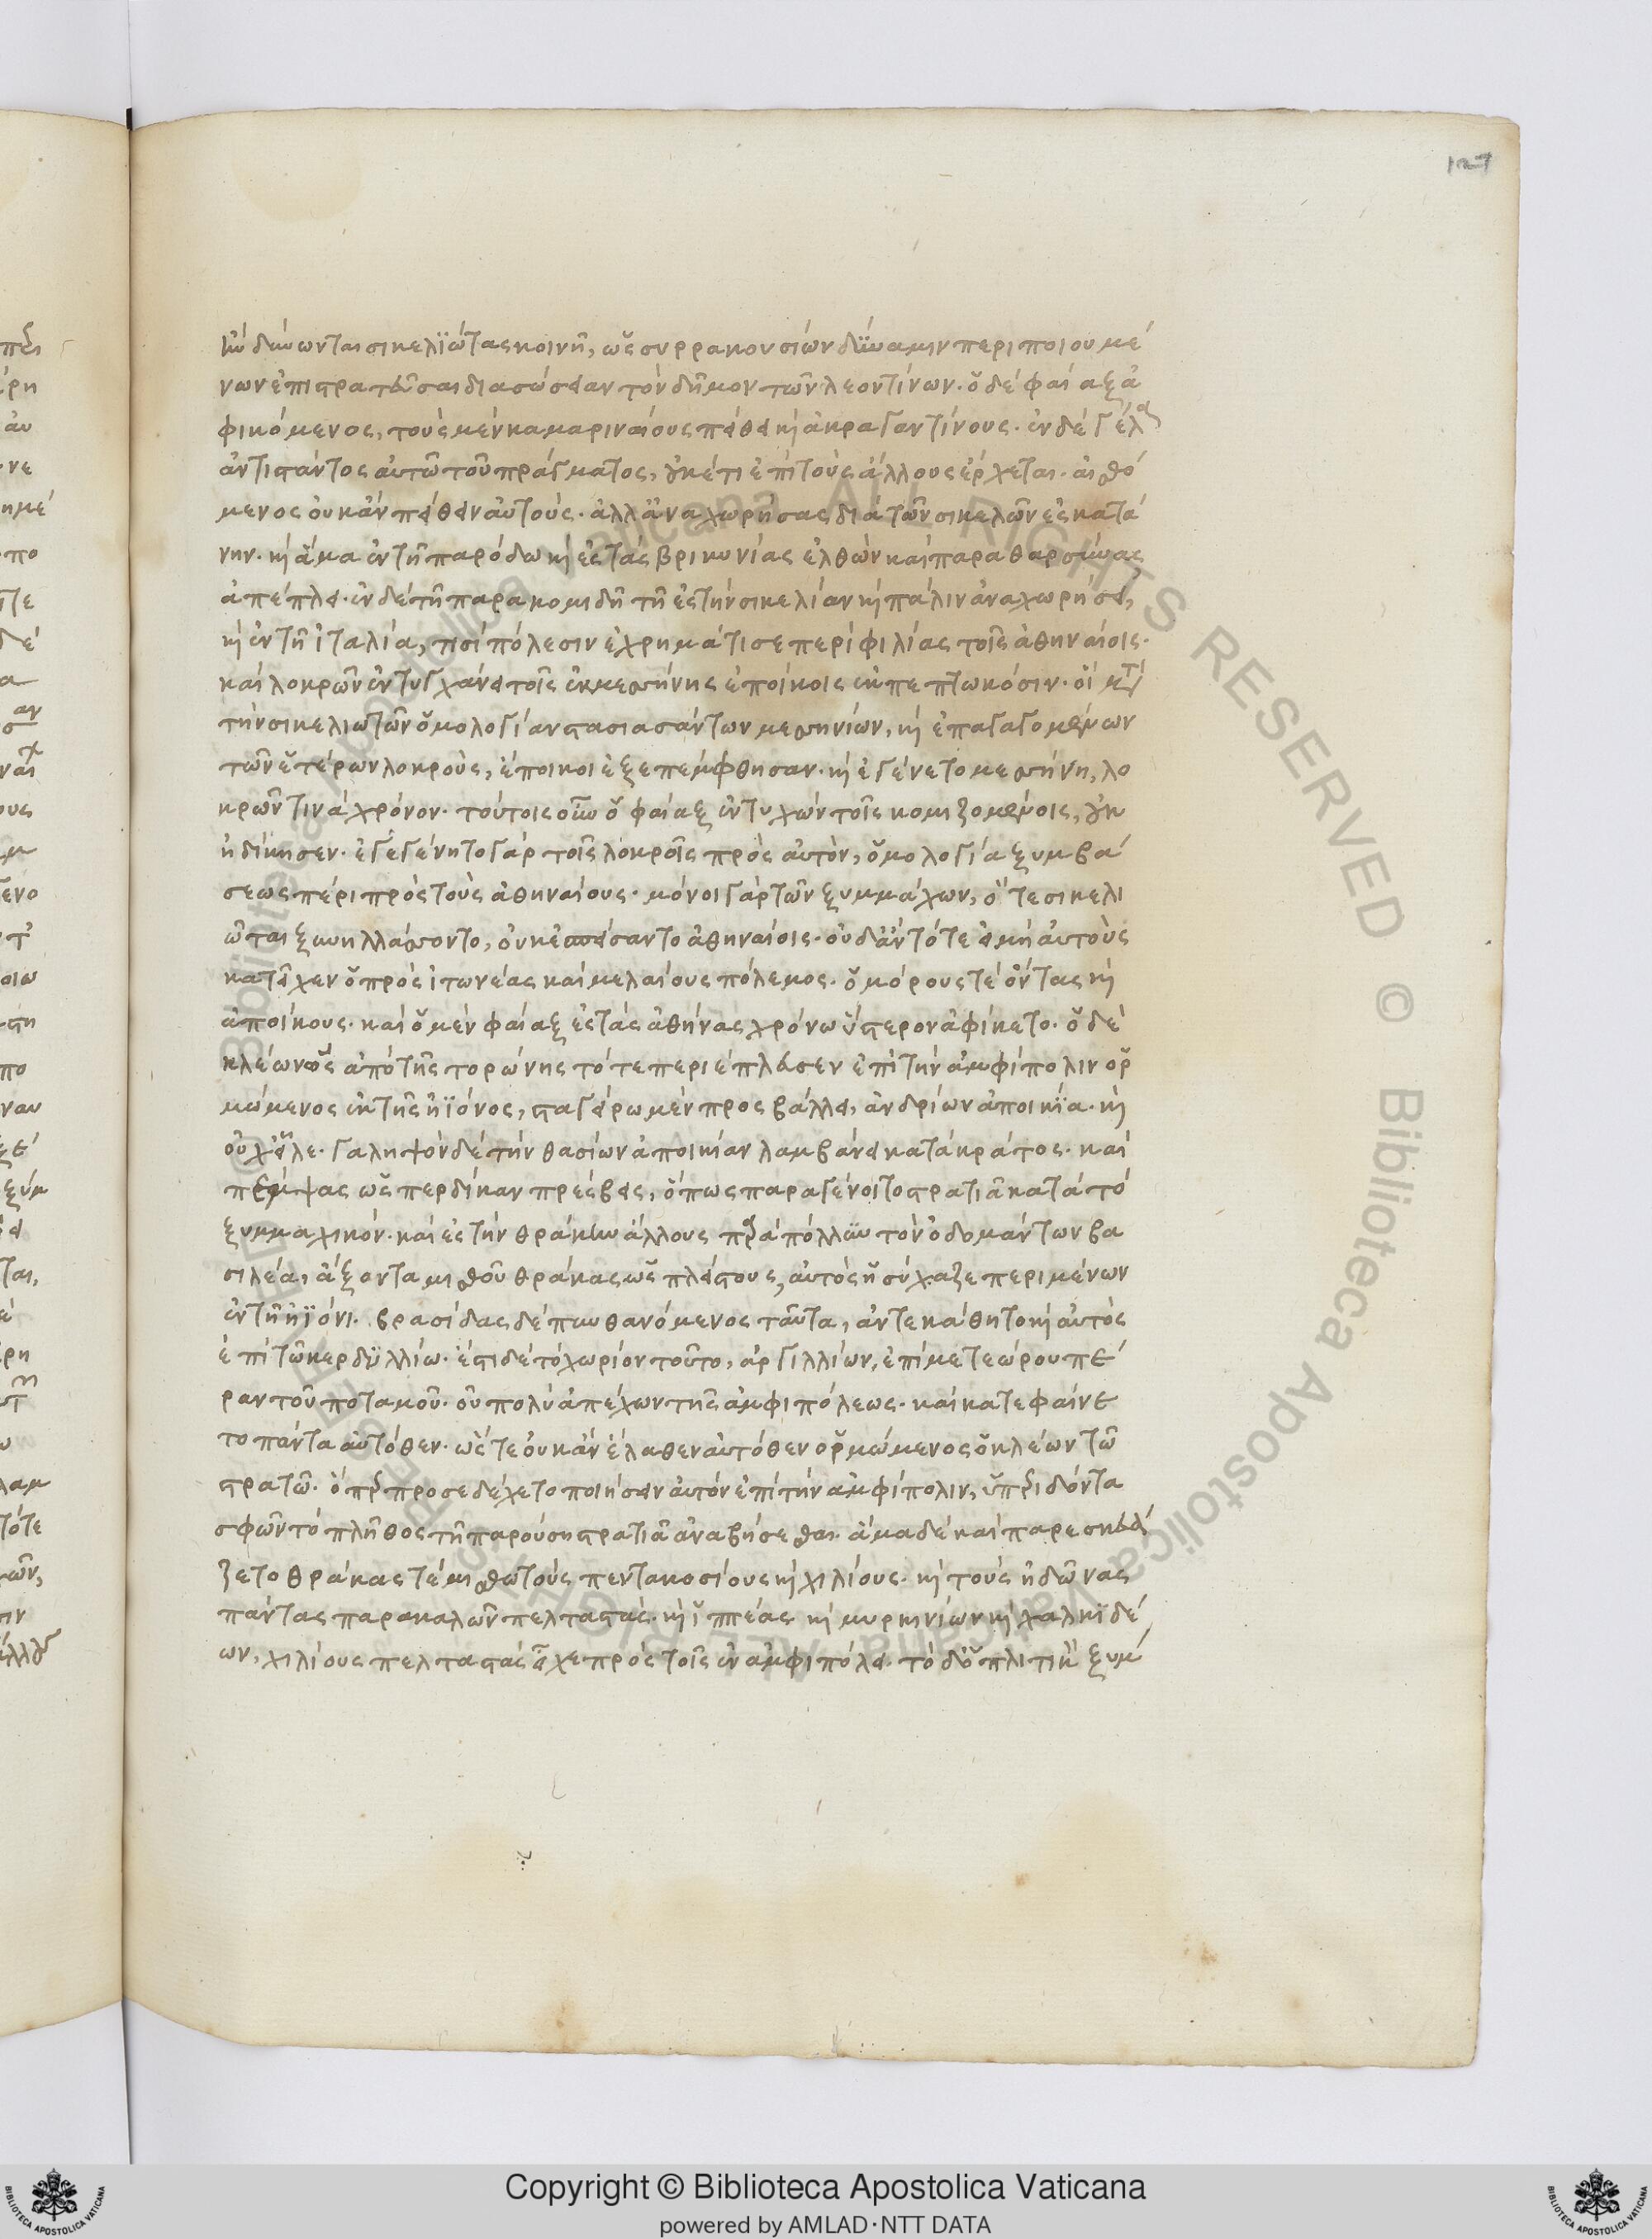 127
ἢν δύνωνται σικελϊώτας κοινῆ, ὡς συρρακουσίων δύναμιν περιποιουμέ
νων ἐπιστρατεῦσαι διασώσειαν τὸν δῆμον τῶν λεοντίνων. ὁ δὲ φαίαξ ἀ
φικόμενος, τοὺς μὲν καμαριναίους πείθει καὶ ἀκραγαντίνους. ἐν δὲ γέλα
ἀντιστάντος αὐτῶ τοῦ πράγματος, οὐκέτι ἐπὶ τοὺς ἄλλους ἔρχεται. αἰσθό
μενος οὐκ ἂν πείθειν αὐτούς. ἀλλ' ἀναχωρήσας διὰ τῶν σικελῶν ἐς κατά
νην. καὶ ἅμα ἐν τῆ παρόδω καὶ ἐς τὰς βρικινίας ἐλθὼν καὶ παραθαρσύνας
ἀπέπλει. ἐν δὲ τῆ παρακομιδῆ τῆ ἐς τὴν σικελίαν καὶ πάλιν ἀναχωρήσει,
καὶ ἐν τῆ ἰταλία, τισὶ πόλεσιν ἐχρημάτισε περὶ φιλίας τοῖς ἀθηναίοις.
καὶ λοκρῶν ἐντυγχάνει τοῖς ἐκ μεσήνης ἐποίκοις ἐκπεπτωκόσιν. οἳ μετὰ
τὴν σικελιωτῶν ὁμολογίαν στασιασάντων μεσηνίων, καὶ ἐπαγαγομένων
τῶν ἑτέρων λοκροὺς, ἔποικοι ἐξεπέμφθησαν. καὶ ἐγένετο μεσήνη, λο
κρῶν τινὰ χρόνον. τούτοις οὖν ὁ φαίαξ ἐντυχὼν τοῖς κομιζομένοις, οὐκ
ἠδίκησεν. ἐγεγένητο γὰρ τοῖς λοκροῖς πρὸς αὐτὸν, ὁμολογία ξυμβά
σεως πέρι πρὸς τοὺς ἀθηναίους. μόνοι γὰρ τῶν ξυμμάχων, ὅτε σικελι
ῶται ξυνηλλάσσοντο, οὐκ ἐσπείσαντο ἀθηναίοις. οὐδ' ἂν τότε εἰ μὴ αὐτοὺς
κατεῖχεν ὁ πρὸς ἰτωνέας καὶ μελαίους πόλεμος. ὁμόρους τὲ ὄντας καὶ
ἀποίκους. καὶ ὁ μὲν φαίαξ ἐς τὰς ἀθήνας χρόνω ὕστερον ἀφίκετο. ὁ δὲ
κλέων ὡς ἀπὸ τῆς τορώνης τότε περιέπλευσεν ἐπὶ τὴν ἀμφίπολιν ὁρ
μώμενος ἐκ τῆς ἠϊόνος, σταγείρω μὲν προσβάλλει, ἀνδρίων ἀποικία. καὶ
οὐχ εἷλε. γαληψὸν δὲ τὴν θασίων ἀποικίαν λαμβάνει κατὰ κράτος. καὶ
πέμψας ὡς περδίκαν πρέσβεις, ὅπως παραγένοιτο στρατιᾶ κατὰ τὸ
ξυμμαχικόν. καὶ ἐς τὴν θράκην ἄλλους παρὰ πόλλην τὸν ὀδομάντων βα
σιλέα, ἄξοντα μισθοῦ θρᾶκας ὡς πλείστους, αὐτὸς ἡσύχαζε περιμένων
ἐν τῆ ἠϊόνι. βρασίδας δὲ πυνθανόμενος ταῦτα, ἀντεκάθητο καὶ αὐτὸς
ἐπὶ τῶ κερδυλλίω. ἔστι δὲ τὸ χωρίον τοῦτο, ἀργιλλίων, ἐπὶ μετεώρου πέ
ραν τοῦ ποταμοῦ. οὐ πολὺ ἀπέχων τῆς ἀμφιπόλεως. καὶ κατεφαίνε
το πάντα αὐτόθεν. ὥστε οὐκ ἂν ἔλαθεν αὐτόθεν ὁρμώμενος ὁ κλέων τῶ
στρατῶ. ὅπερ προσεδέχετο ποιήσειν αὐτὸν ἐπὶ τὴν ἀμφίπολιν, ὑπεριδόντα
σφῶν τὸ πλῆθος τῆ παρούση στρατιᾶ ἀναβήσεσθαι. ἅμα δὲ καὶ παρεσκευά
ζετο θρᾶκας τὲ μισθωτοὺς πεντακοσίους καὶ χιλίους. καὶ τοὺς ἠδῶνας
πάντας παρακαλῶν πελταστὰς. καὶ ἱππέας καὶ μυρκινίων καὶ χαλκιδέ
ων, χιλίους πελταστὰς εἶχε πρὸς τοῖς ἐν ἀμφιπόλει. τὸ δ' ὁπλιτικὸν ξυμ
Copyright © Biblioteca Apostolica Vaticana
powered by AMLAD·NTT DATA